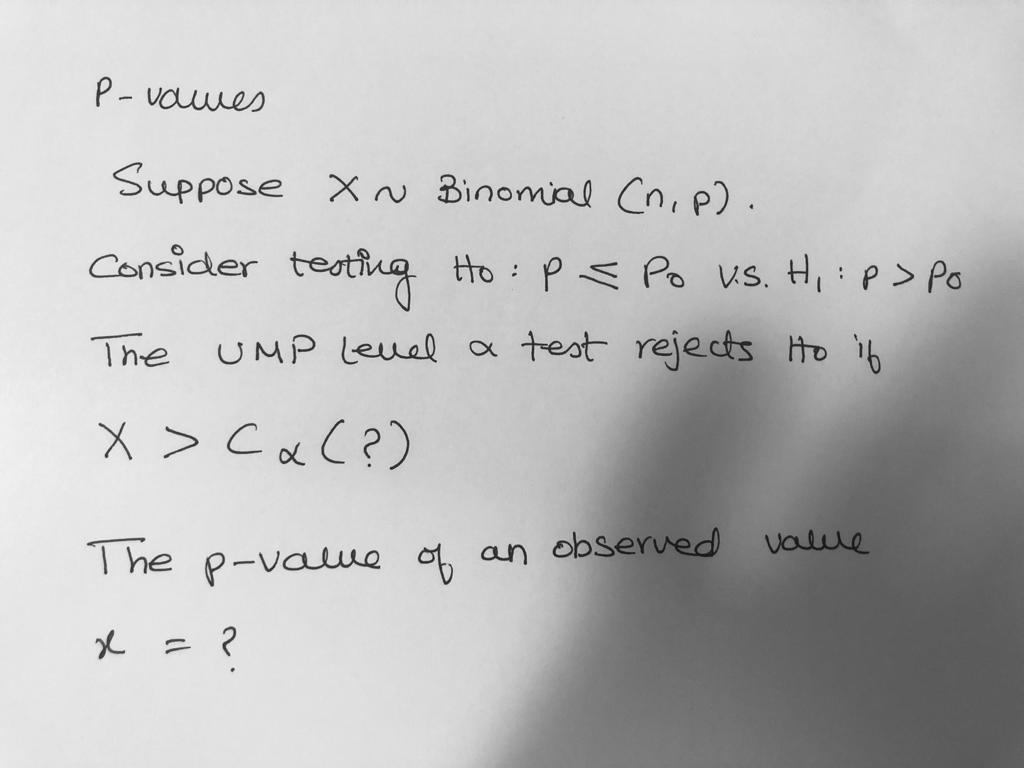 P-values
Suppose X ~ Binomial (n, p).
Consider testing Ho : P ≤ Po v.s. H₁ : P > Po
The UMP level α test rejects Ho if
X > Cα (?)
The p-value of an observed value
x = ?